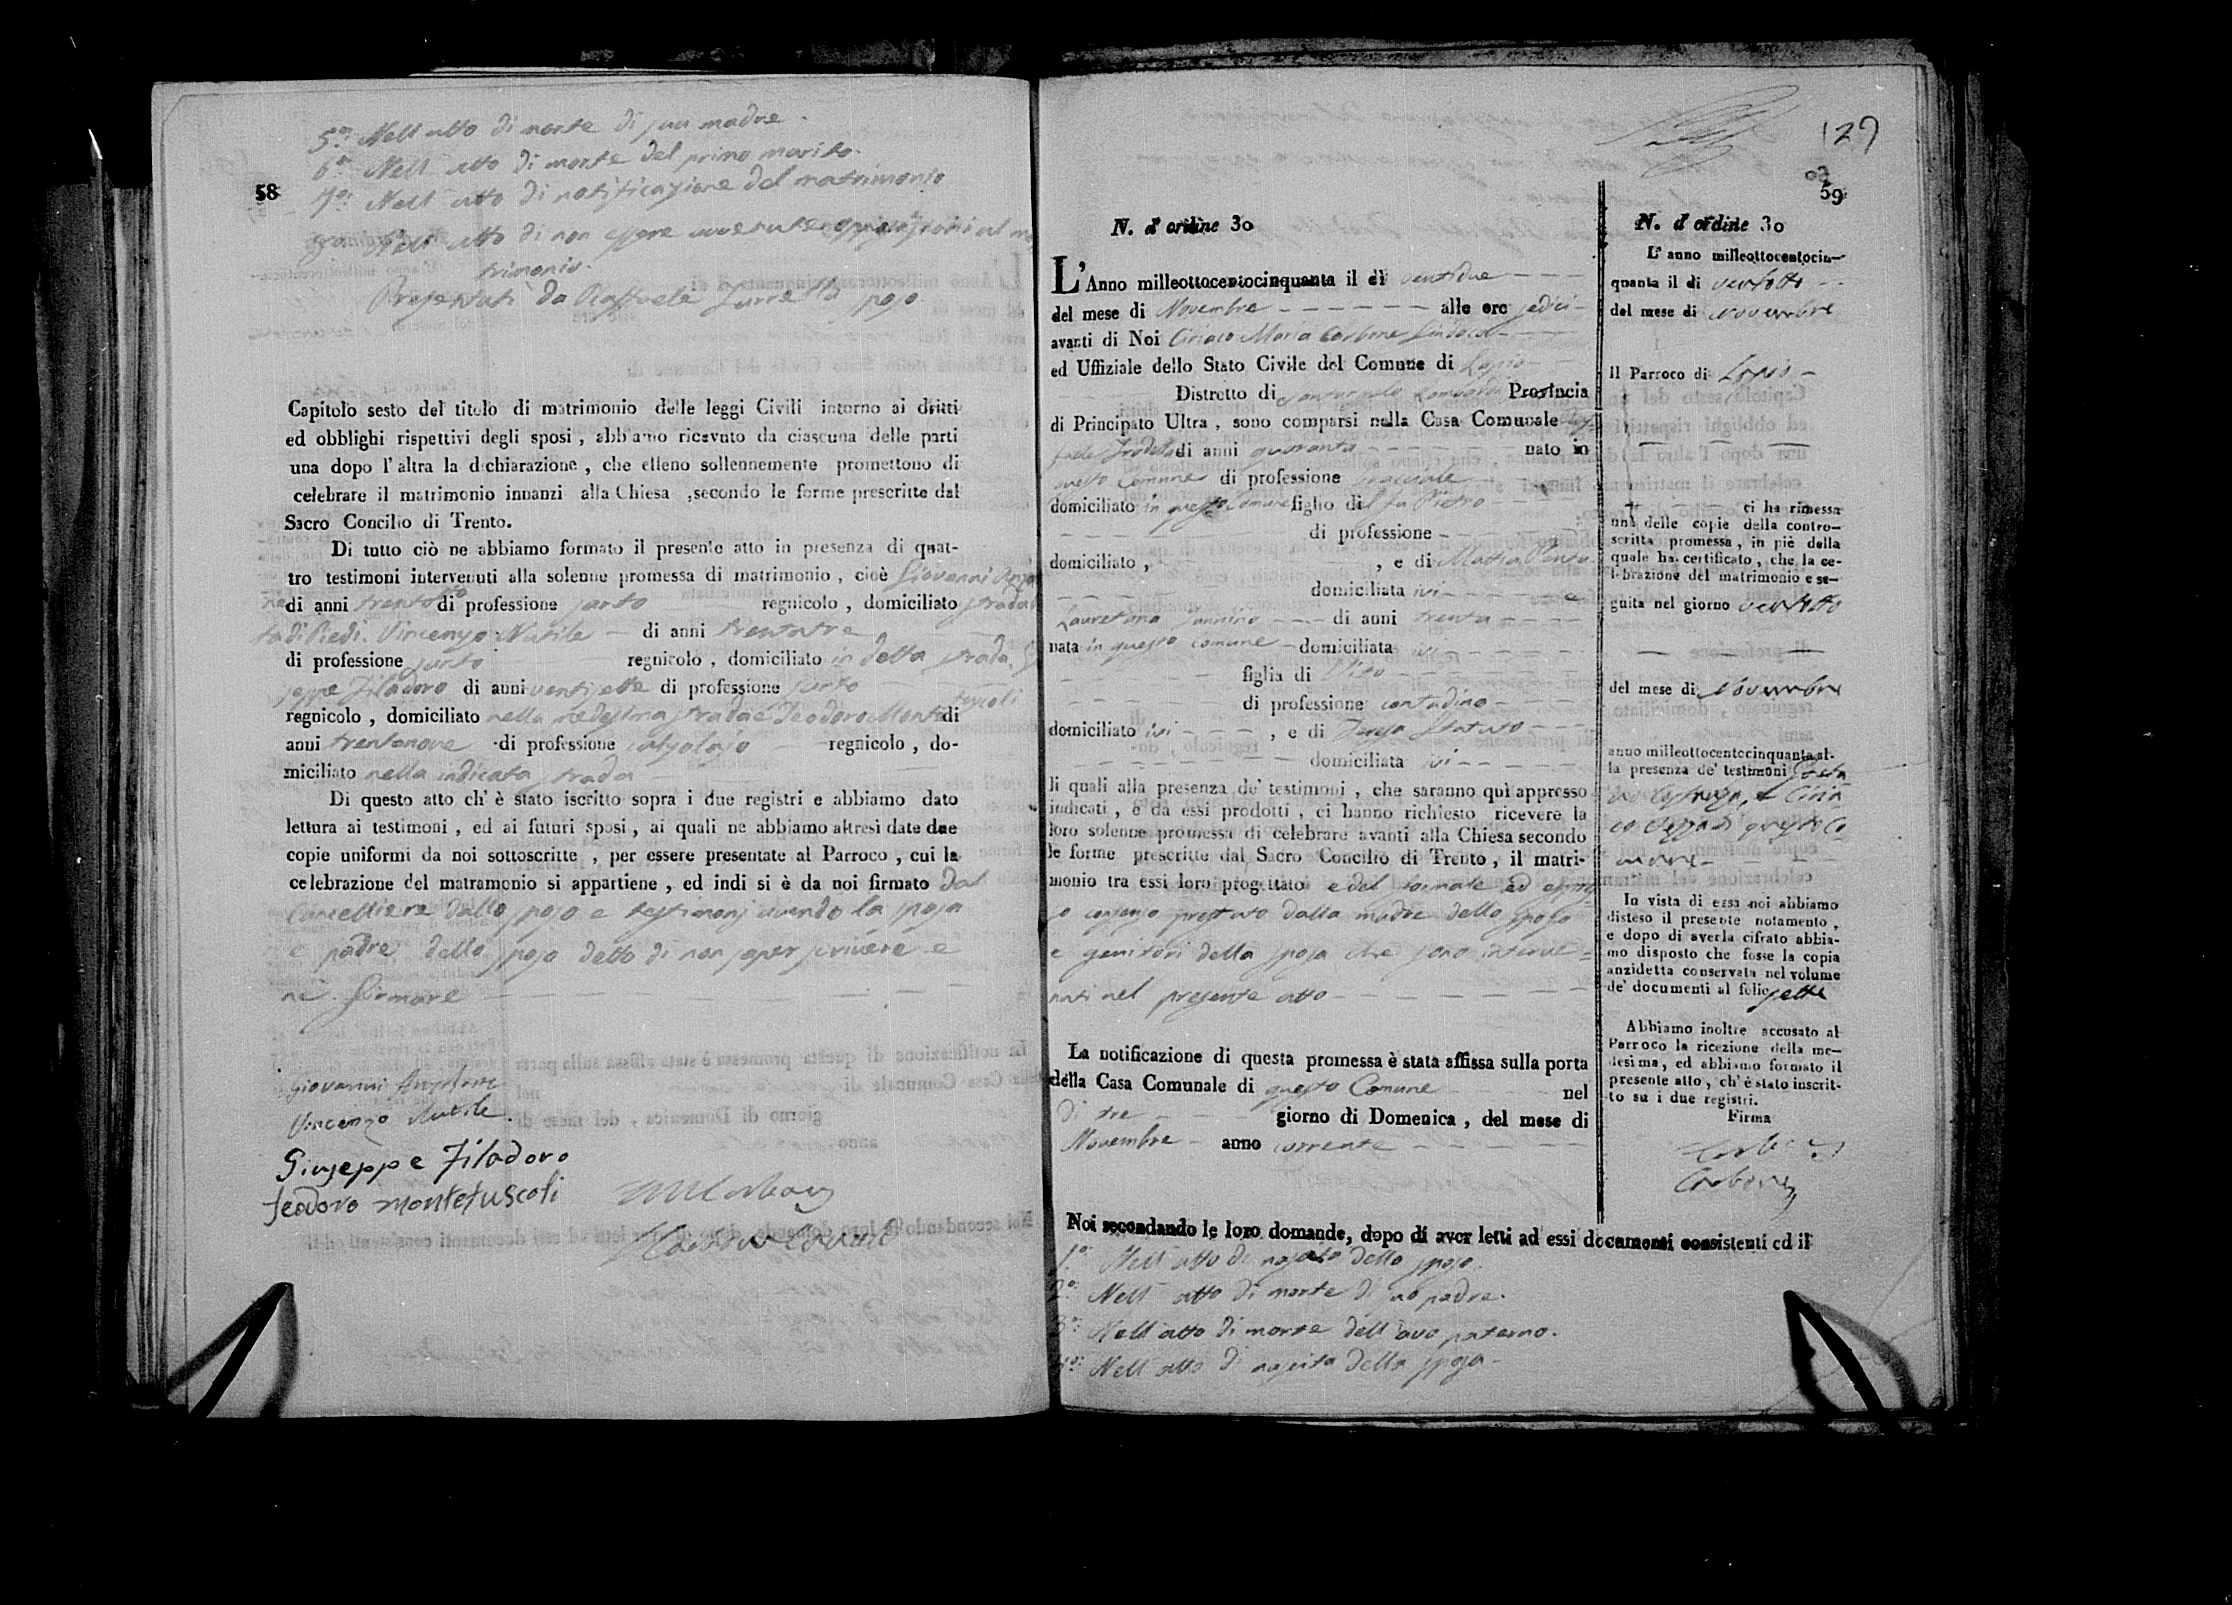 5.° Nell'atto di morte di sua madre.
6.° Nell'atto di morte del primo marito.
58
7.° Nell'atto di notificazione del matrimonio
Nell'atto di non essere avvenute opposizioni al ma
trimonio.
Presentati da Raffaele sposo
Capitolo sesto del titolo di matrimonio delle leggi Civili intorno ai dritti
ed obblighi rispettivi degli sposi, abbiamo ricevuto da ciascuna delle parti
una dopo l'altra la dichiarazione, che elleno sollennemente promettono di
celebrare il matrimonio innanzi alla Chiesa, secondo le forme prescritte dal
Sacro Concilio di Trento.
Di tutto ciò ne abbiamo formato il presente atto in presenza di quat-
tro testimoni intervenuti alla solenne promessa di matrimonio, cioè Giovanni
di anni trentotto di professione sarto regnicolo, domiciliato strada
Piedi. Vincenzo Nutile di anni trentatre
di professione sarto regnicolo, domiciliato in detta strada
seppe Filadoro di anni ventisette di professione sarto
regnicolo, domiciliato nella medesima strada e Teodoro Montefuscoli di
anni trentanove di professione calzolajo regnicolo, do-
miciliato nella indicata strada
Di questo atto ch'è stato iscritto sopra i due registri e abbiamo dato
lettura ai testimoni, ed ai futuri sposi, ai quali ne abbiamo altresi date due
copie uniformi da noi sottoscritte, per essere presentate al Parroco, cui la
celebrazione del matramonio si appartiene, ed indi si è da noi firmato dal
Cancelliere dallo sposo e testimonj avendo la sposa
e padre dello sposo detto di non saper scrivere e
nè firmare
Giovanni
Vincenzo Nutile.
Giuseppe Filadoro
Teodoro Montefuscoli
129
59
N. d'ordine 30
L'Anno milleottocentocinquanta il dì ventidue
del mese di Novembre alle ore sedici
avanti di Noi Ciriaco Maria Carbone Sindaco
ed Uffiziale dello Stato Civile del Comune di Lapio
Distretto di Provincia
di Principato Ultra, sono comparsi nella Casa Comunale
di anni quaranta nato in
questo Comune di professione
domiciliato in questo Comune figlio del fu Pietro
di professione
domiciliato, , e di
domiciliata ivi
Lauretana di anni trenta
nata in questo comune domiciliata ivi
figlia di Vito
di professione contadino
domiciliato ivi , e di
domiciliata ivi
li quali alla presenza de' testimoni, che saranno quì appresso
indicati, e da essi prodotti, ci hanno richiesto ricevere la
loro solenne promessa di celebrare avanti alla Chiesa secondo
le forme prescritte dal Sacro Concilio di Trento, il matri-
monio tra essi loro progettato e del formale ed espres
so consenso prestato dalla madre dello sposo
e genitori della sposa che sono interve=
nuti nel presente atto
La notificazione di questa promessa è stata affissa sulla porta
della Casa Comunale di questo Comune nel
di tre giorno di Domenica, del mese di
Novembre anno corrente
Noi secondando le loro domande, dopo di aver letti ad essi documenti consistenti ed il
1.° Nell'atto di nascita dello sposo.
2.° Nell'atto di morte di suo padre.
3.° Nell'atto di morte dell'avo paterno.
4.° Nell'atto di nascita della sposa
N. d'ordine 30
L'anno milleottocentocin-
quanta il di ventotto
del mese di Novembre
il Parroco di Lapio
ci ha rimessa
una delle copie della contro-
scritta promessa, in piè della
quale ha certificato, che la ce-
lebrazione del matrimonio e se-
guita nel giorno ventotto
del mese di Novembre
anno milleottocentocinquanta al-
la presenza de' testimoni
Ciria
co di questo Co
mune
In vista di essa noi abbiamo
disteso il presente notamento,
e dopo di averla cifrato abbia-
mo disposto che fosse la copia
anzidetta conservata nel volume
de' documenti al folio sette
Abbiamo inoltre accusato al
Parroco la ricezione della me-
desima, ed abbiamo formato il
presente atto, ch'è stato inscrit-
to su i due registri.
Firma
Carbone